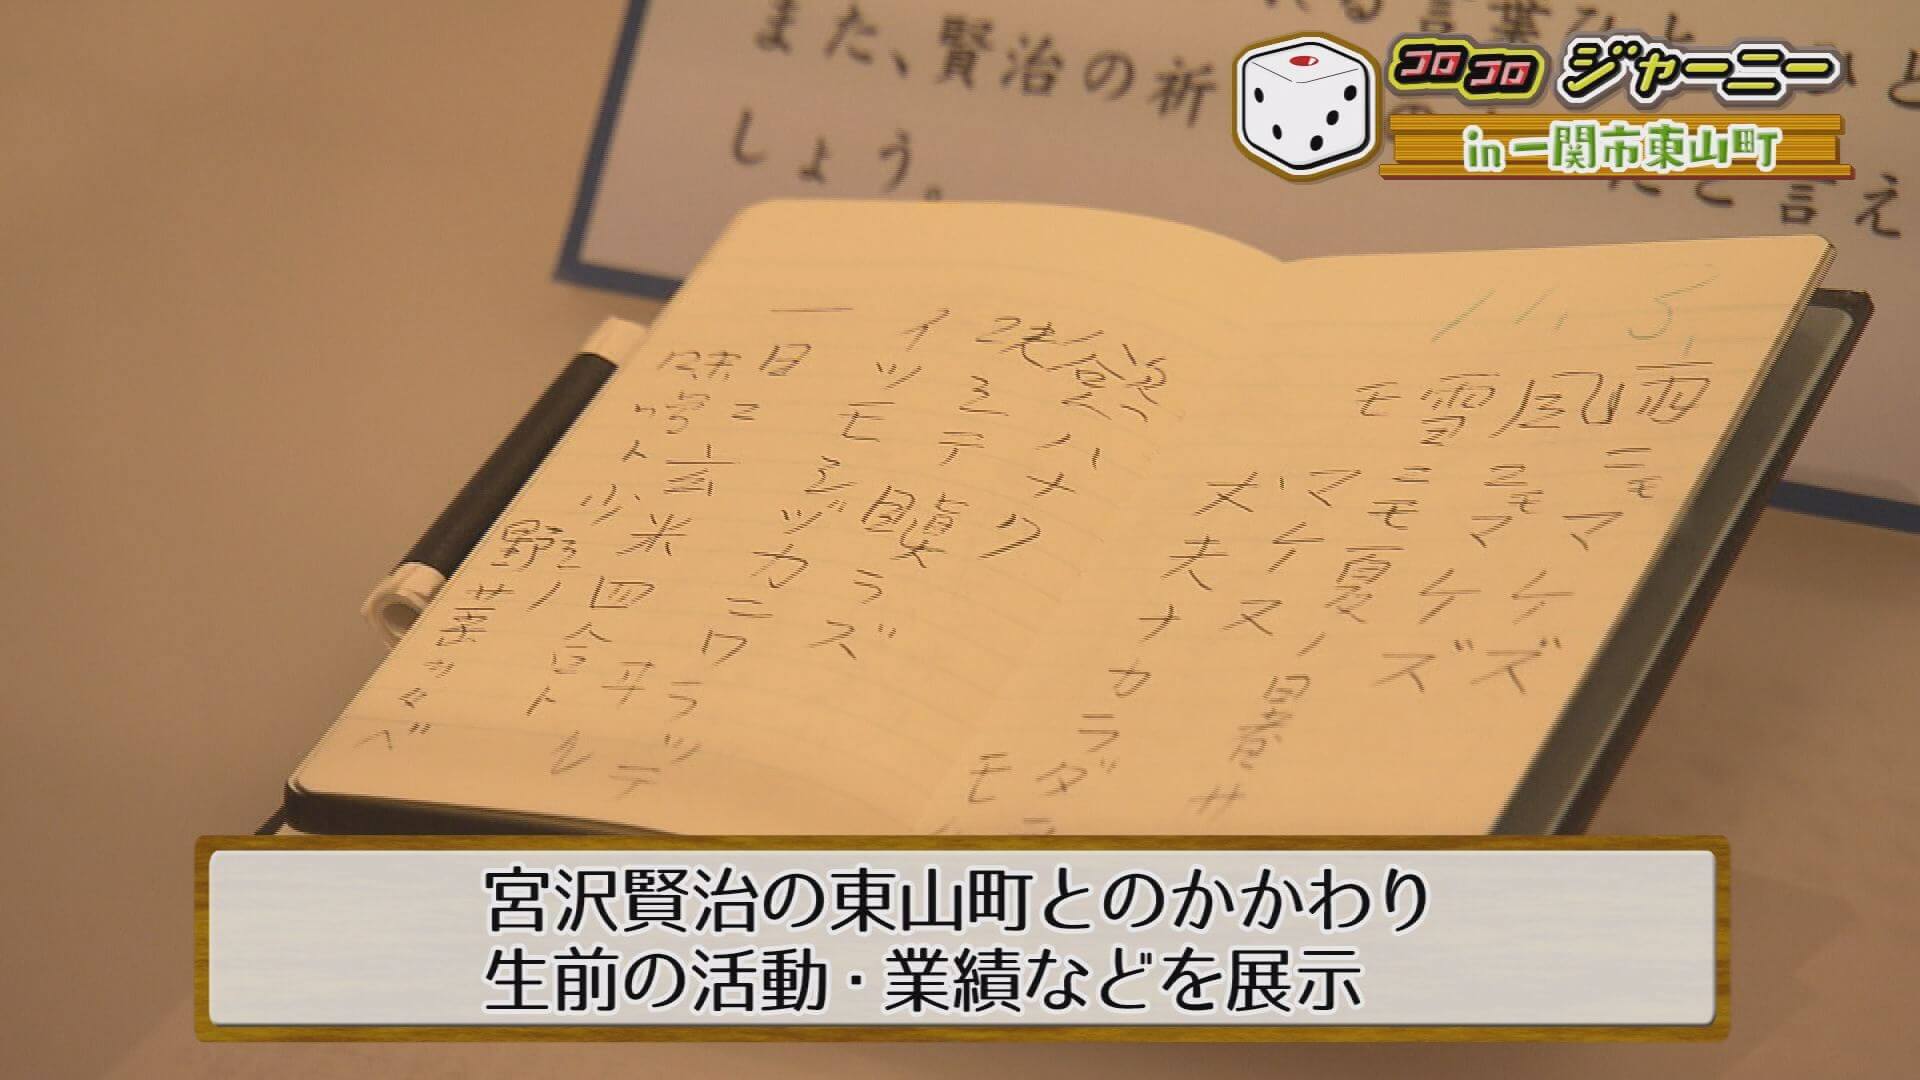 また、賢治の祈
しょう。
言葉ひと
言え
コロコロ ジャーニー
in 一関市東山町
11. 3.
雨ニモマケズ
風ニモマケズ
雪ニモ夏ノ暑サ
モ
マケヌ
丈夫ナカラダ
モ
慾ハナク
決シテ瞋ラズ
イツモシヅカニワラッテ
一日ニ玄米四合ト
味噌ト少
野菜ヲタベ
宮沢賢治の東山町とのかかわり
生前の活動・業績などを展示